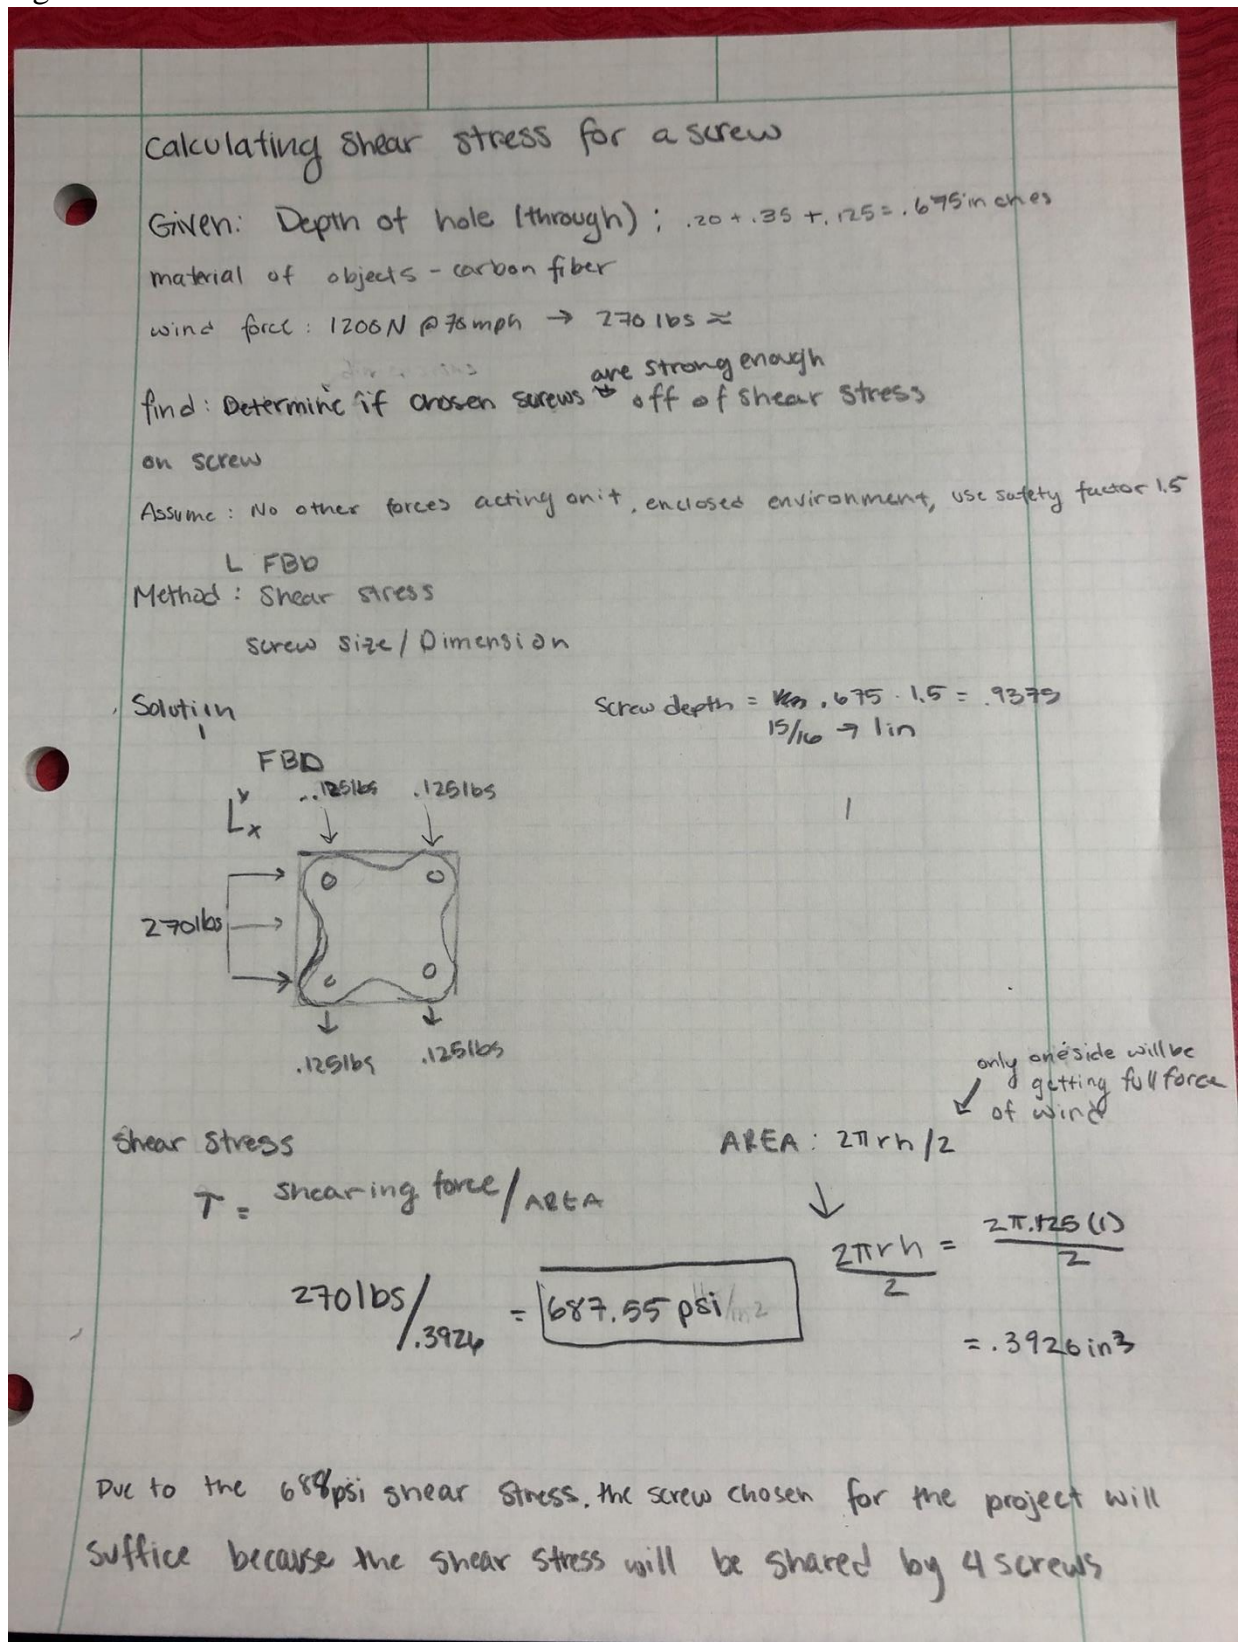 Calculating Shear stress for a screw
Given: Depth of hole (through); .20 + .35 + .125 = .675 inches
material of objects - carbon fiber
wind force: 1200N @ 70mph → 270 lbs ≈
are strong enough
find: Determine if chosen screws off of shear stress
on screw
Assume: No other forces acting on it, enclosed environment, use safety factor 1.5
L FBD
Method: Shear stress
screw size/Dimension
Solution
Screw depth = .675 · 1.5 = .9375
15/16 → 1in
FBD
.125lbs .125lbs
y
x
270lbs
.125lbs .125lbs
only one side will be
getting full force
of wind
Shear Stress
AREA: 2πrh/2
T = shearing force/AREA
2πrh/2 = 2π.125(1)/2
270lbs/.3926 = 687.55 psi
= .3926in3
Due to the 688psi shear stress, the screw chosen for the project will
suffice because the shear stress will be shared by 4 screws